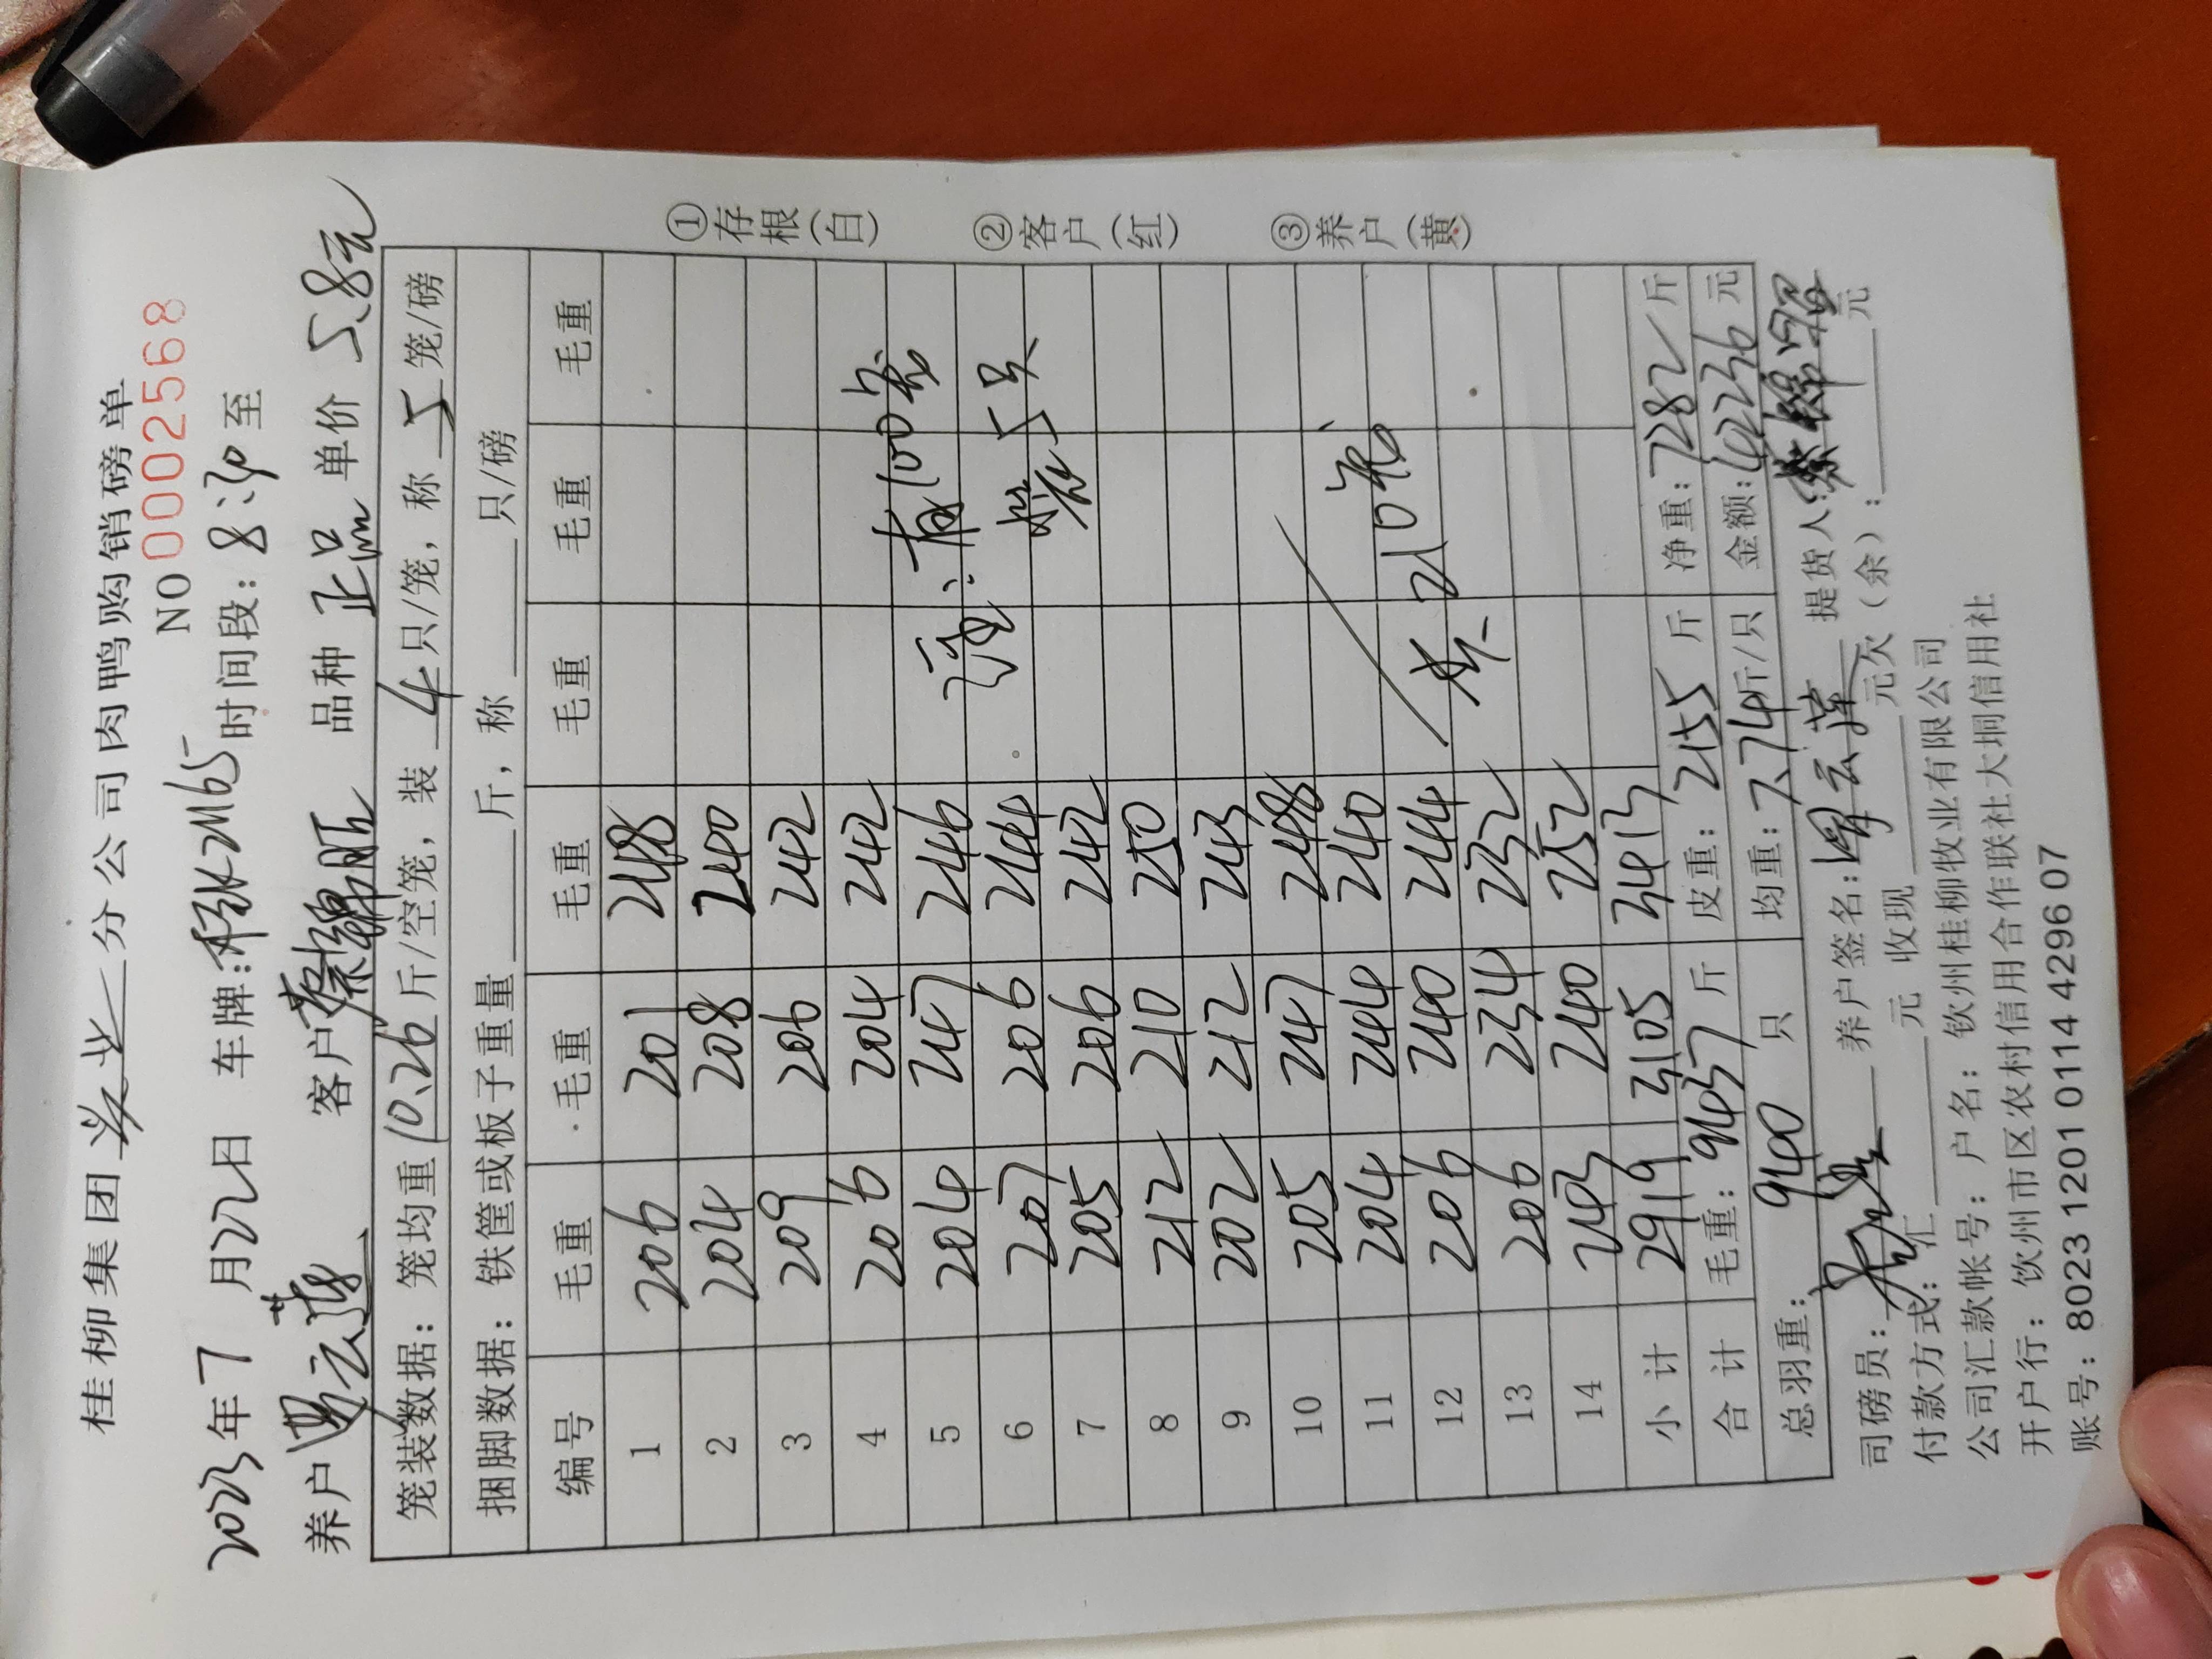 桂柳集团 兴业 分公司肉鸭购销磅单
NO 0002568
2023年7月22日 车牌: 时间段: 8:30 至
养户 客户 蔡锦丽 品种 正品 单价 5.8元
笼装数据: 笼均重 10.26 斤/空笼, 装 4 只/笼, 称 5 笼/磅
捆脚数据: 铁筐或板子重量 斤, 称 只/磅
编号 毛重 毛重 毛重 毛重 毛重 毛重
1 206 201 248
2 204 208 240
3 209 206 242
4 206 204 242
5 204 247 246
6 207 206 244
7 205 206 242
8 212 210 250
9 202 212 243
10 205 247 248
11 204 244 240
12 206 240 244
13 206 234 232
14 243 240 252
有100笼
5只
共 210笼
小计 2919 3105 3413
合计 毛重: 9437 斤 皮重: 2155 斤 净重: 7282 斤
总羽重: 940 只 均重: 7.74 斤/只 金额: 42236 元
司磅员: 养户签名: 提货人:
付款方式: 汇 元 收现 元欠(余): 元
公司汇款帐号: 户名: 钦州桂柳牧业有限公司
开户行: 钦州市区农村信用合作联社大垌信用社
账号: 8023 1201 0114 4296 07
①存根(白) ②客户(红) ③养户(黄)